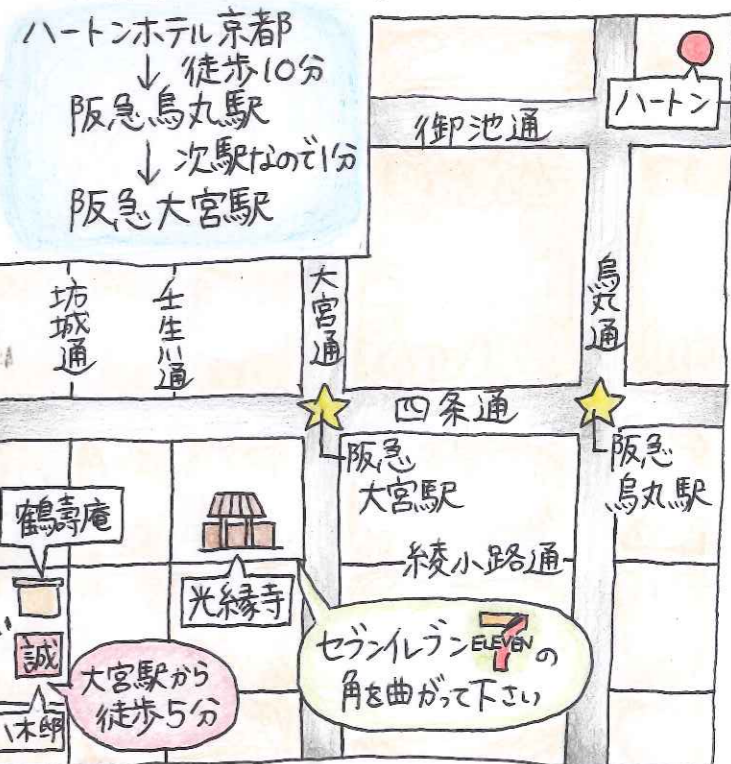 ハートンホテル京都
↓ 徒歩10分
阪急烏丸駅
↓ 次駅なので1分
阪急大宮駅
ハートン
御池通
坊城通
壬生川通
大宮通
烏丸通
四条通
阪急
大宮駅
阪急
烏丸駅
鶴壽庵
光縁寺
綾小路通
誠
大宮駅から
徒歩5分
セブンイレブン 7 ELEVEN の
角を曲がって下さい
八木邸